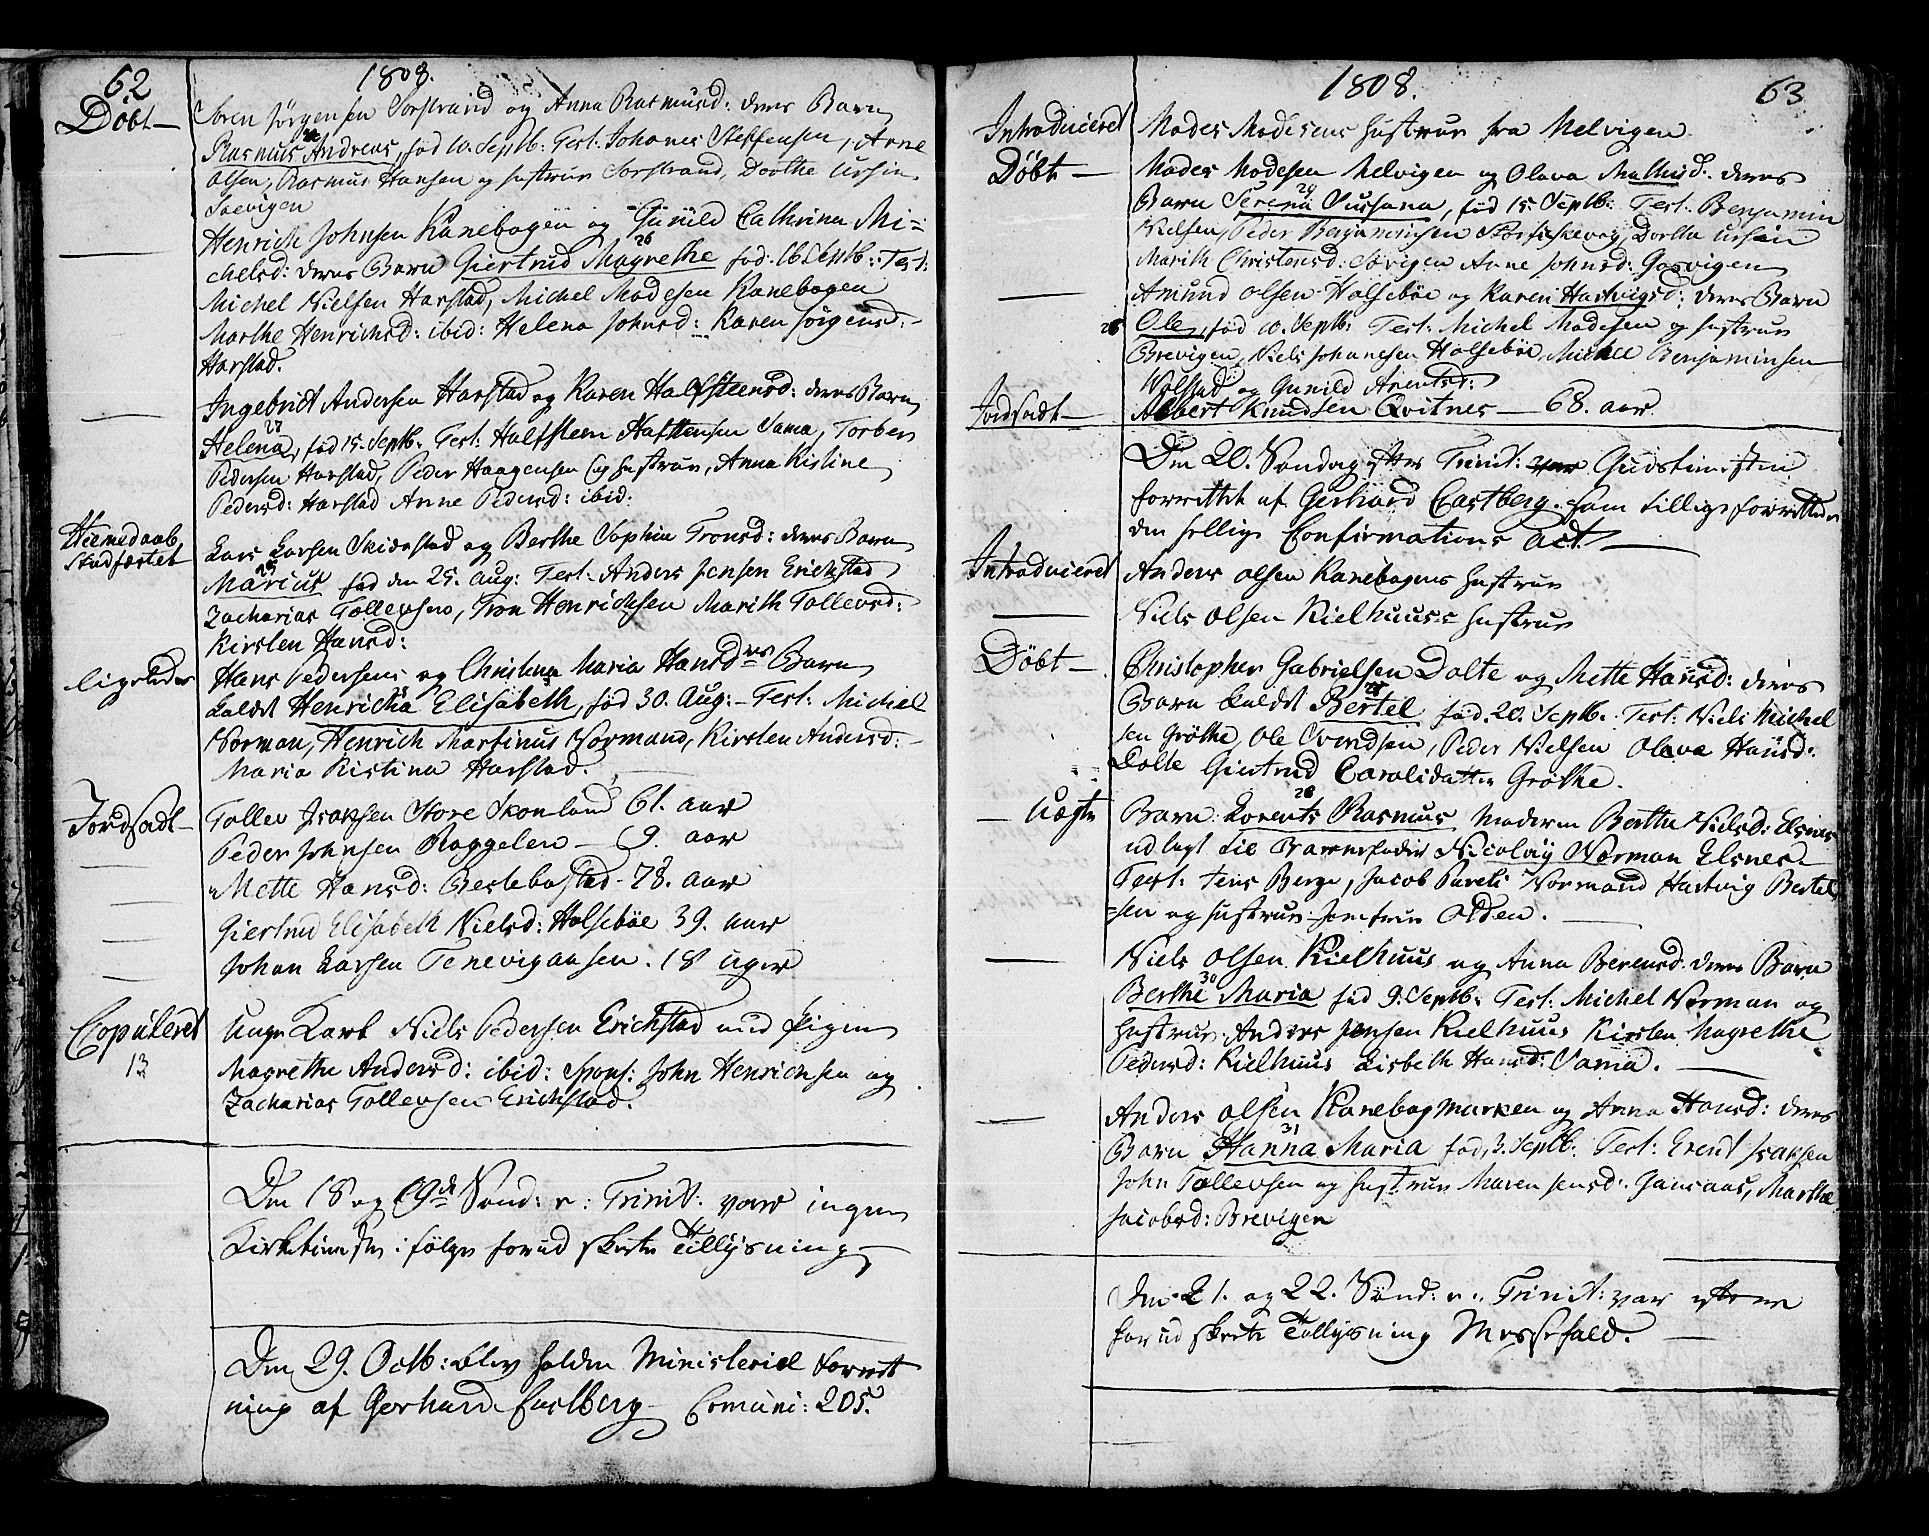 62
1808.
Döbt —
Sören Jörgensen Sorstrand og Anna Rasmusd: deres Barn
Rasmus Andreas, föd 10. Septb: Test: Johanes Steffensen, Anne
Olsen, Rasmus Hansen og Hustrue Sorstrand, Dorthe
Soevigen
Henrich Johnsen Kanebogen og Gunild Cathrina Mi=
chelsd: deres Barn Giertrud Magrethe föd 16 Septb: Test:
26
Michel Nielsen Harstad, Michel Madesen Kanebogen
Marthe Henrichsd: ibid: Helena Johnsd: Karen Jörgensd:
Harstad.
Ingebrict Andersen Harstad og Karen Halfsteensd: deres Barn
Helena, föd 15. Septb: Test: Halfsteen Vama, Torber
27
Pedersen Harstad, Peder Haagensen og Hustrue, Anna Kistine
Pedersd: Harstad Anne Pedersd: ibid:
Hiemedaab
Stadfæstet
Lars Larsen Skidestad og Berthe Sophia Tronsd: deres Barn
Marius föd den 25. Aug: Test: Anders Jensen Erichstad
Zacharias Tollevsens, Tron Henrichsen Marith Tollevsd:
Kirsten Hansd:
ligeledes
Hans Pedersens og Christina Maria Hansdrs Barn
kaldt Henricha Elisabeth, föd 30. Aug: — Test: Michel
Norman, Henrich Martinus Normand, Kirsten Andersd:
Maria Kistina Harstad.
Jordsadt —
Tollev Isaksen Store Skonland 61. aar
Peder Johnsen Roggelen — 9. aar
Mette Hansd: Bestebostad — 78. aar
Giertrud Elisabeth Nielsd: Halsebøe 39. aar
Johan Larsen Tenevigaasen. 18 uger
Copuleret
13
Unge Karl Niels Pedersen Erichstad med Pigen
Magrethe Andersd: ibid: Spons: John Henrichsen og
Zacharias Tollevsen Erichstad.
Den 18 og 19de Sönd: e: Trinit: var ingen
Kirketieneste i fölge forud skeete Tillysning —
Den 29. Octb: blev holden Ministeriel forret
ning af Gerhard Castberg — Comuni: 205.
1808.
63
Introduceret
Mades Madesens Hustrue fra Melvigen
Döbt —
Mades Madesen Melvigen og Olava Mathisd: deres
Barn Serena Susana, föd 15. Septb: Test: Benjamin
29
Nielsen, Peder Benjaminsen Storfiskevøy, Dorthe
Marith Christensd: Sövigen Anne Johnsd: Gaavigen
Amund Olsen Halsebøe og Karen Hartvigsd: deres Barn
Ole, föd 10. Septb: Test: Michel Madesen og Hustrue
Brevigen, Niels Johanesen Halsebøe, Michel Benjaminsen
og Gunild Arentsd:
Jordsadt —
Albert Knudsen Qvitnes — 68. aar
Den 20. Söndag efter Trinit: var Gudstienesten
forrettet af Gerhard Castberg. Som tillige forrettede
den hellige Confirmations Act —
Introduceret
Anders Olsen Kanebogens Hustrue
Niels Olsen Kielhuus's Hustrue
Döbt —
Christopher Gabrielsen Dalte og Mette Hansd: deres
Barn kaldt Bertel föd. 20. Septb: Test: Niels Michel
sen Gröthe, Ole Svendsen, Peder Nielsen Olava Hansd:
Dalte Giertrud Carolidatter Gröthe.
— Uægte
Barn: Lorents Rasmus Moderen Berthe Nielsd: Elsnes
28
udlagt til Barnefader Nicolay Norman Elsnes —
Test: Jens Berge, Jacob Normand Hartvig Bertel
=sen og Hustrue Jomfrue Olden. —
Niels Olsen Kielhuus og Anna Berensd: deres Barn
Berthe Maria föd 9. Septb: Test: Michel Norman og
30
Hustrue. Anders Jensen Kielhuus Kirsten Magrethe
Pedersd: Kielhuus Lisbeth Hansd: Vama. —
Anders Olsen Kanebogmarken og Anna Hansd: deres
Barn Hanna Maria föd, 3. Septb: Test: Erent Isaksen
31
John Tollevsen og Hustrue Maren Jensd: Gansaas, Marthe
Jacobsd: Brevigen
Den 21. og 22. Sönd: e: Trinit: var efter
forud skeete Tillysning Messefald. —